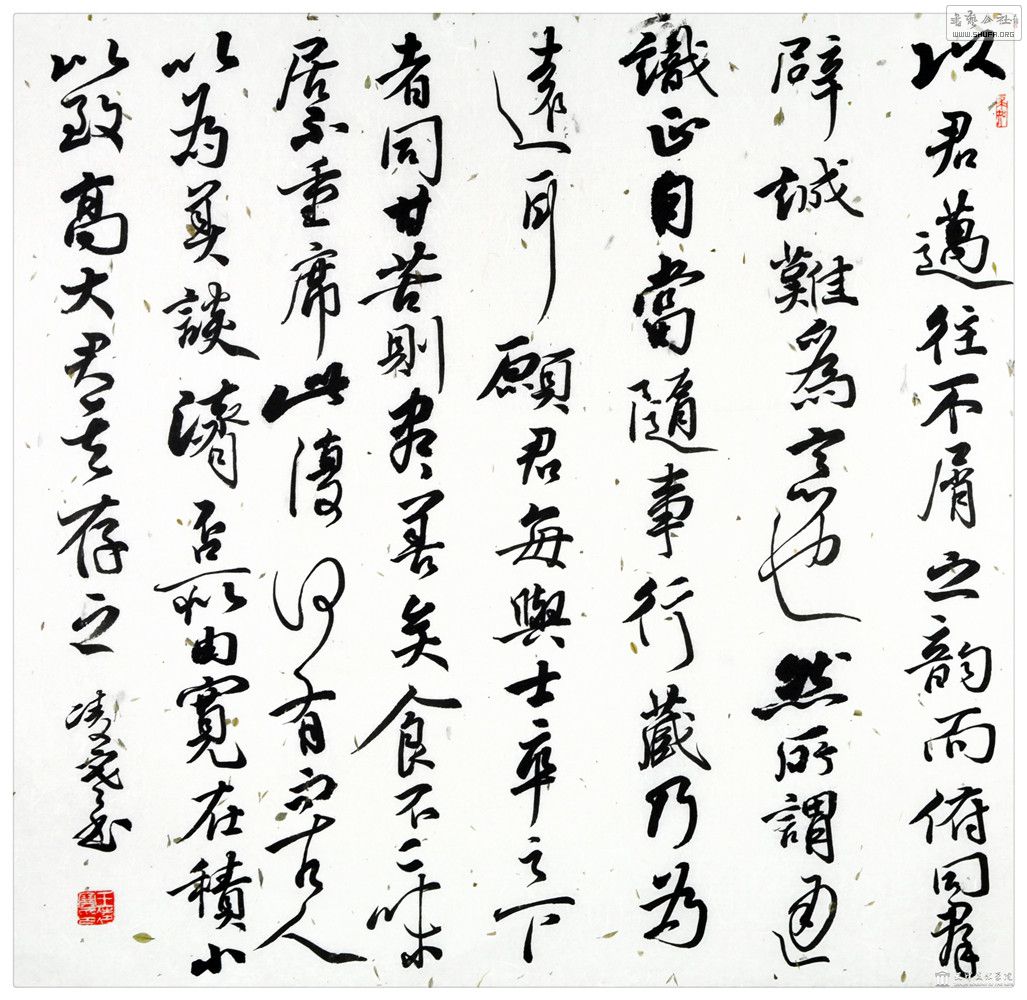 以君邁往不屑之韵而俯同羣
辟誠難為意也然所謂通
識正自當隨事行藏乃為
遠耳願君每與士卒之下
者同甘苦則盡善矣食不二味
居不重席此復何有而古人
以為美談濟否所由實在積小
以致高大君其存之
書藝公社
WWW.SHUFA.ORG